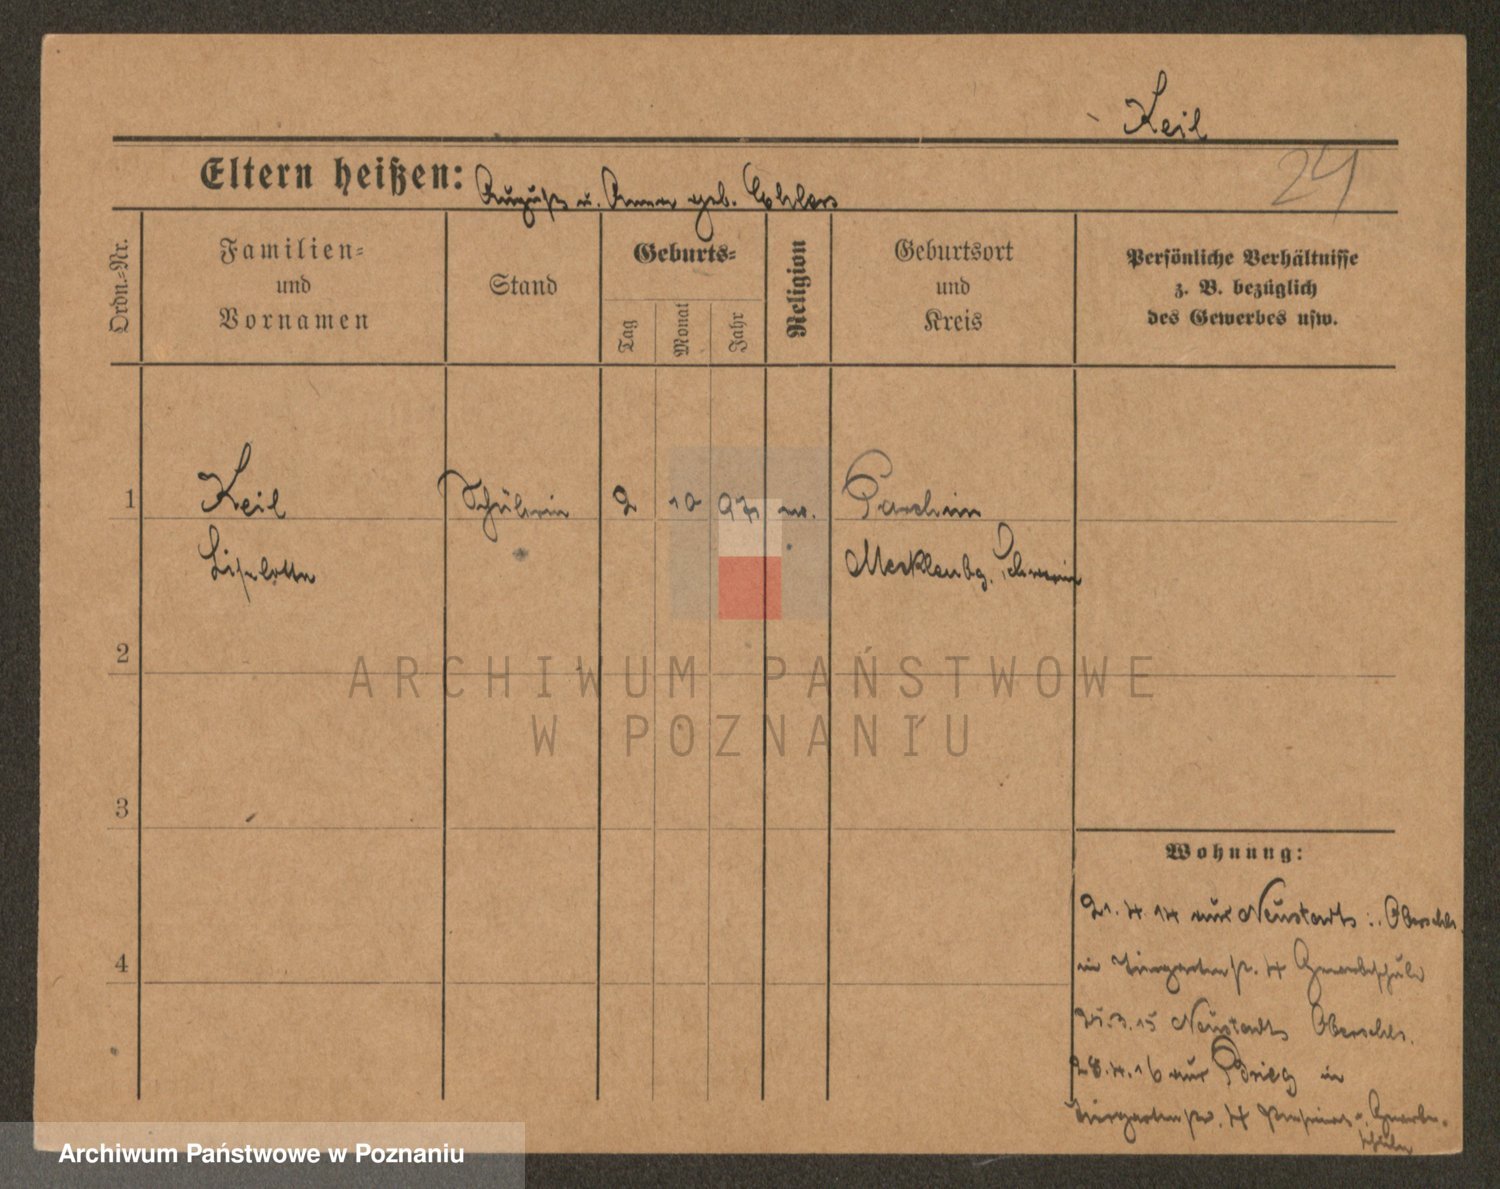 Keil
24
Eltern heißen: August u. Anna geb. Ehlers
Ordn.=Nr.
Familien=
und
Vornamen
Stand
Geburts=
Tag
Monat
Jahr
Religion
Geburtsort
und
Kreis
Persönliche Verhältnisse
z. B. bezüglich
des Gewerbes usw.
1
Keil Schülerin 2 10 97 ev. Parchim
Liselotte Mecklenbg. Schwerin
2
3
4
Wohnung:
21.4.14 aus Neustadt Oberschls.
in Tiergartenstr. 4 Gewerbeschule
25.3.15 Neustadt Oberschls.
28.4.16 aus Brieg in
Tiergartenstr. 4 Gewerbe-
schule
ARCHIWUM PAŃSTWOWE
W POZNANIU
Archiwum Państwowe w Poznaniu